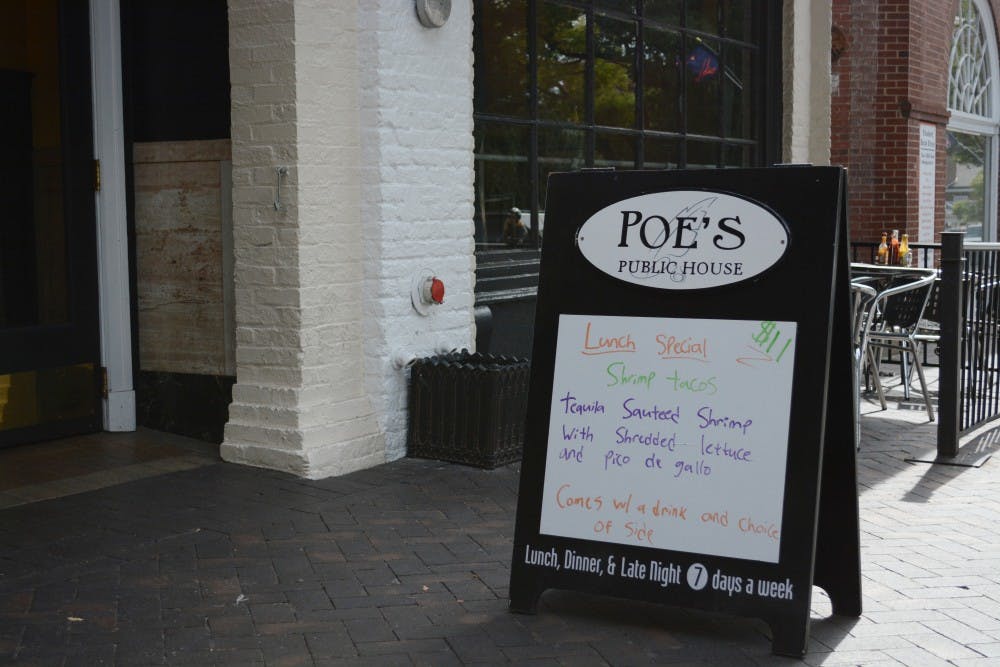 POE'S
PUBLIC HOUSE
Lunch Special $11
Shrimp tacos
Tequila Sauteed Shrimp
With Shredded lettuce
and pico de gallo
Comes w/ a drink and choice
of side
Lunch, Dinner, & Late Night 7 days a week